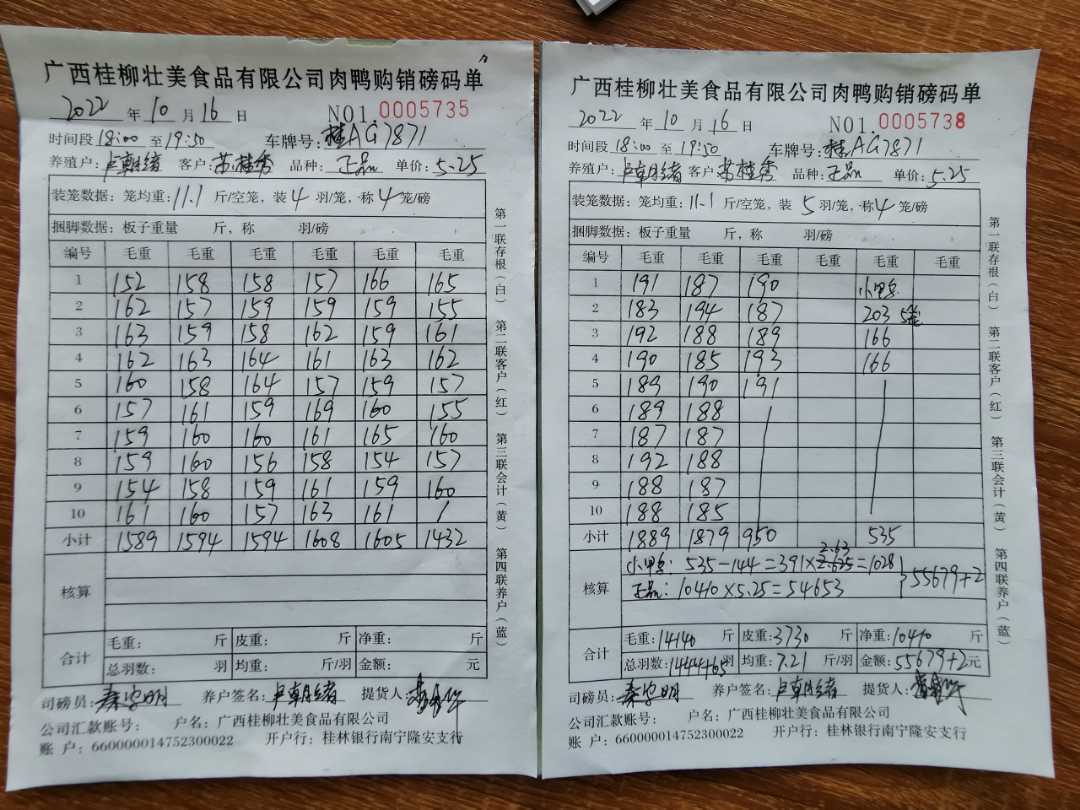 广西桂柳壮美食品有限公司肉鸭购销磅码单
2022 年 10 月 16 日 NO1. 0005735
时间段 18:00 至 19:50 车牌号: 桂AG7871
养殖户: 卢朝绪 客户: 苏桂秀 品种: 正品 单价: 5.25
装笼数据: 笼均重: 11.1 斤/空笼, 装 4 羽/笼, 称 4 笼/磅
捆脚数据: 板子重量 斤, 称 羽/磅
编号 毛重 毛重 毛重 毛重 毛重 毛重
1 152 158 158 157 166 165
2 162 157 159 159 159 155
3 163 159 158 162 159 161
4 162 163 164 161 163 162
5 160 158 164 157 159 157
6 157 161 159 169 160 155
7 159 160 160 161 165 160
8 159 160 156 158 154 157
9 154 158 159 161 159 160
10 161 160 157 163 161 /
小计 1589 1594 1594 1608 1605 1432
核算
合计 毛重: 斤 皮重: 斤 净重: 斤
总羽数: 羽 均重: 斤/羽 金额: 元
司磅员: 养户签名: 卢朝绪 提货人:
公司汇款账号: 户名: 广西桂柳壮美食品有限公司
账 户: 660000014752300022 开户行: 桂林银行南宁隆安支行
第一联存根(白) 第二联客户(红) 第三联会计(黄) 第四联养户(蓝)
广西桂柳壮美食品有限公司肉鸭购销磅码单
2022 年 10 月 16 日 NO1. 0005738
时间段 18:00 至 19:50 车牌号: 桂AG7871
养殖户: 卢朝绪 客户: 苏桂秀 品种: 正品 单价: 5.25
装笼数据: 笼均重: 11.1 斤/空笼, 装 5 羽/笼, 称 4 笼/磅
捆脚数据: 板子重量 斤, 称 羽/磅
编号 毛重 毛重 毛重 毛重 毛重 毛重
1 191 187 190 小鸭
2 183 194 187 203 5笼
3 192 188 189 166
4 190 185 193 166
5 189 190 191
6 189 188
7 187 187
8 192 188
9 188 187
10 188 185
小计 1889 1879 950 535
核算 小鸭: 535-144=391×2.63=1028
正品: 10410×5.25=54653 }55679+2
合计 毛重: 14140 斤 皮重: 3730 斤 净重: 10410 斤
总羽数: 1444+63 羽 均重: 7.21 斤/羽 金额: 55679+2 元
司磅员: 养户签名: 卢朝绪 提货人:
公司汇款账号: 户名: 广西桂柳壮美食品有限公司
账 户: 660000014752300022 开户行: 桂林银行南宁隆安支行
第一联存根(白) 第二联客户(红) 第三联会计(黄) 第四联养户(蓝)